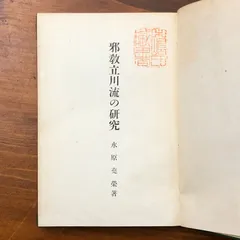 邪教立川流の研究
水原堯榮著